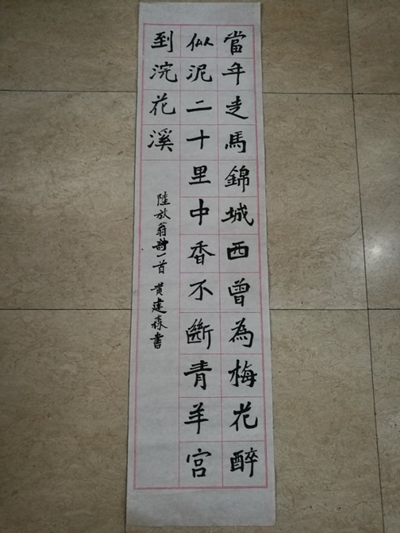 當年走馬錦城西曾為梅花醉
似泥二十里中香不斷青羊宮
到浣花溪
陸放翁詩一首 黄建森書